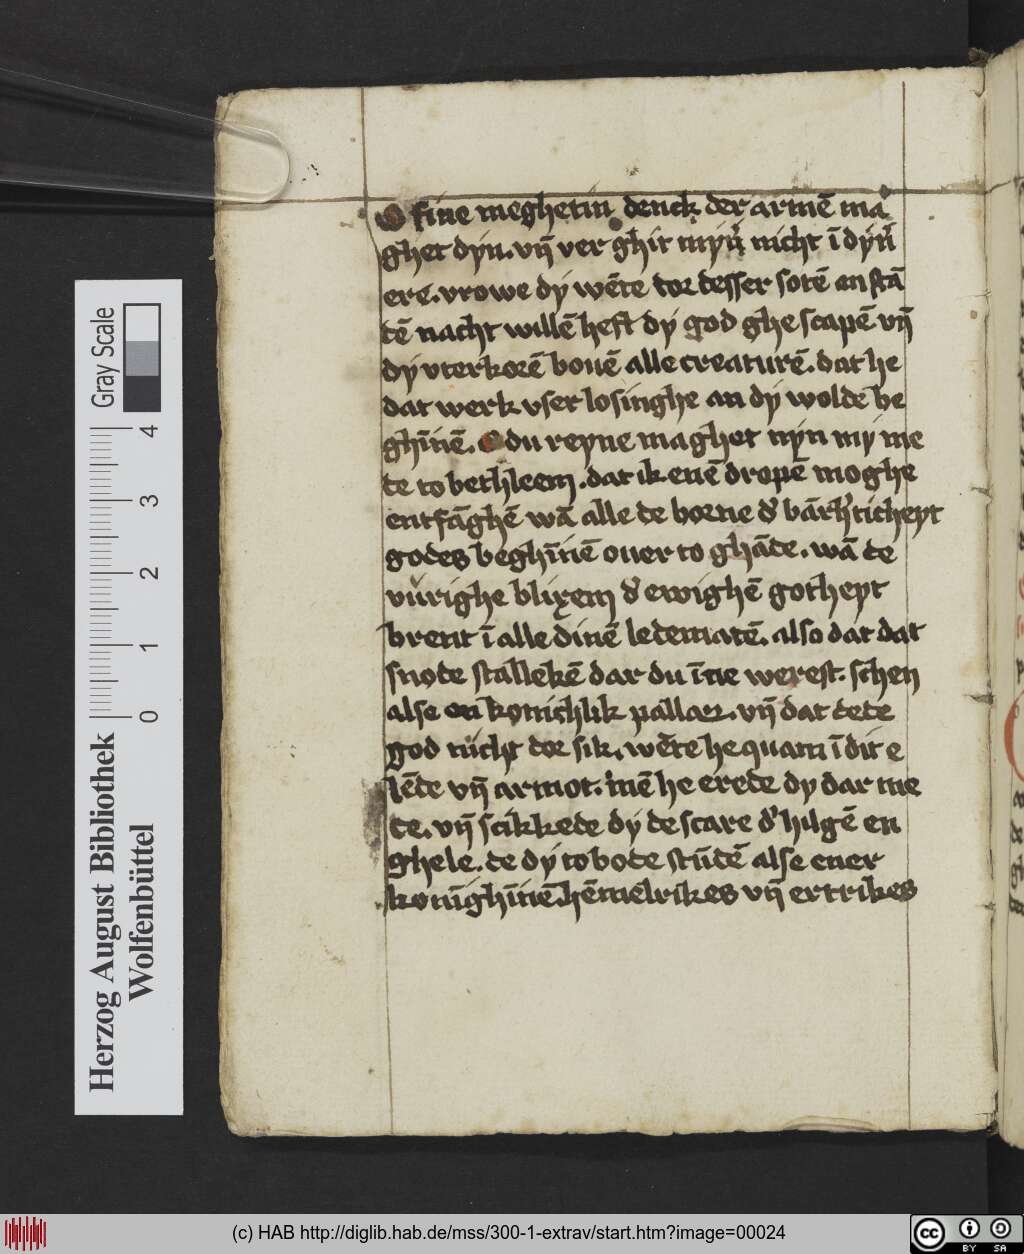 O fine meghetin denck der armē ma
ghet dyn. vn̄ ver ghit myn̄ nicht ī dyn̄
ere. vrowe dy wēte dor desser sotē an stā
dē nacht willē heft dy god ghe scapē vn̄
dy vterkorē bouē alle creaturē. dat he
dat werk vser losinghe an dy wolde be
ghīnē. O du reyne maghet nym my me
de to bethleem. dat ik enē dropē moghe
entfāghē wā alle de borne d' bārh'ticheyt
godes beghīnē ouer to ghāde. wā de
vůrighe blixem d' ewighē gotheyt
brent ī alle dinē ledematē. also dat dat
snode stallekē dar du īne werest. schen
alse en konichlik pallaz. vn̄ dat dede
god nicht dor sik. wēte he quam ī dit e
lēde vn̄ armot. mē he erede dy dar me
de. vn̄ scikkede dy de scare d' hilgē en
ghele. de dy to bode stūdē alse ener
konīghīnē hēmelrikes vn̄ ertrikes
Herzog August Bibliothek
Wolfenbüttel
Gray Scale
0 1 2 3 4
(c) HAB http://diglib.hab.de/mss/300-1-extrav/start.htm?image=00024
cc BY SA